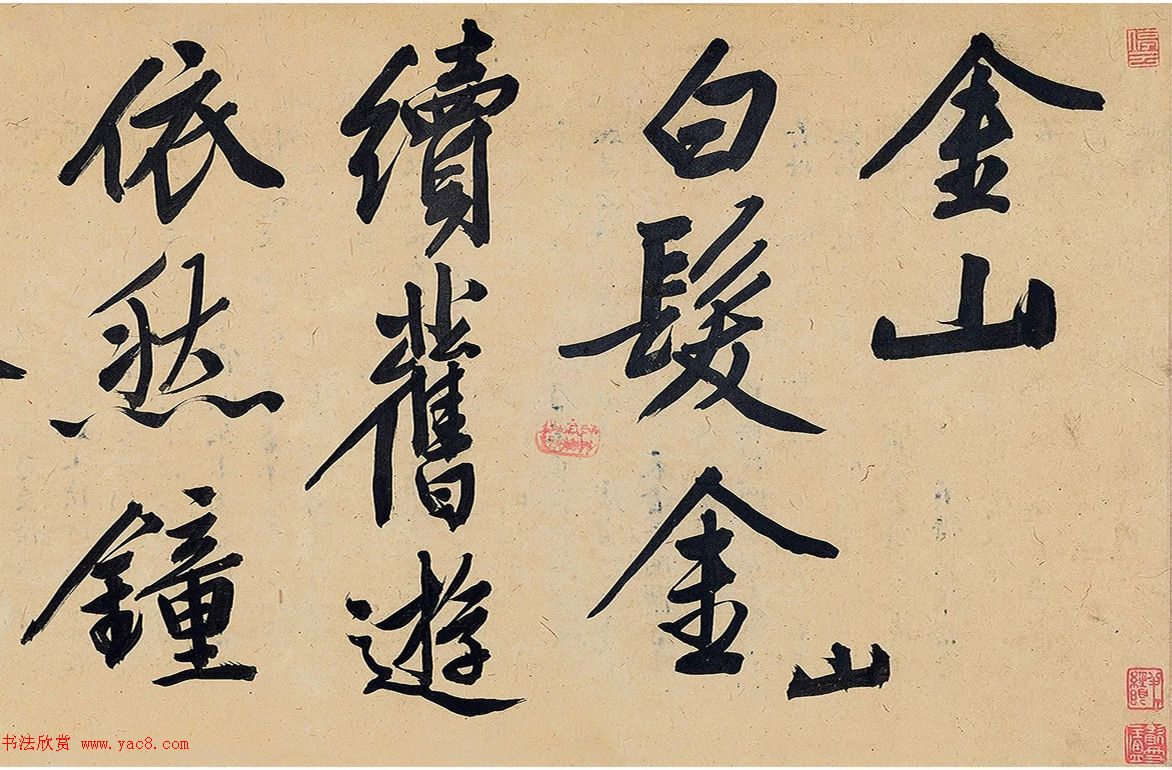 金山
白髮金山
續舊遊
依然鐘
书法欣赏 www.yac8.com